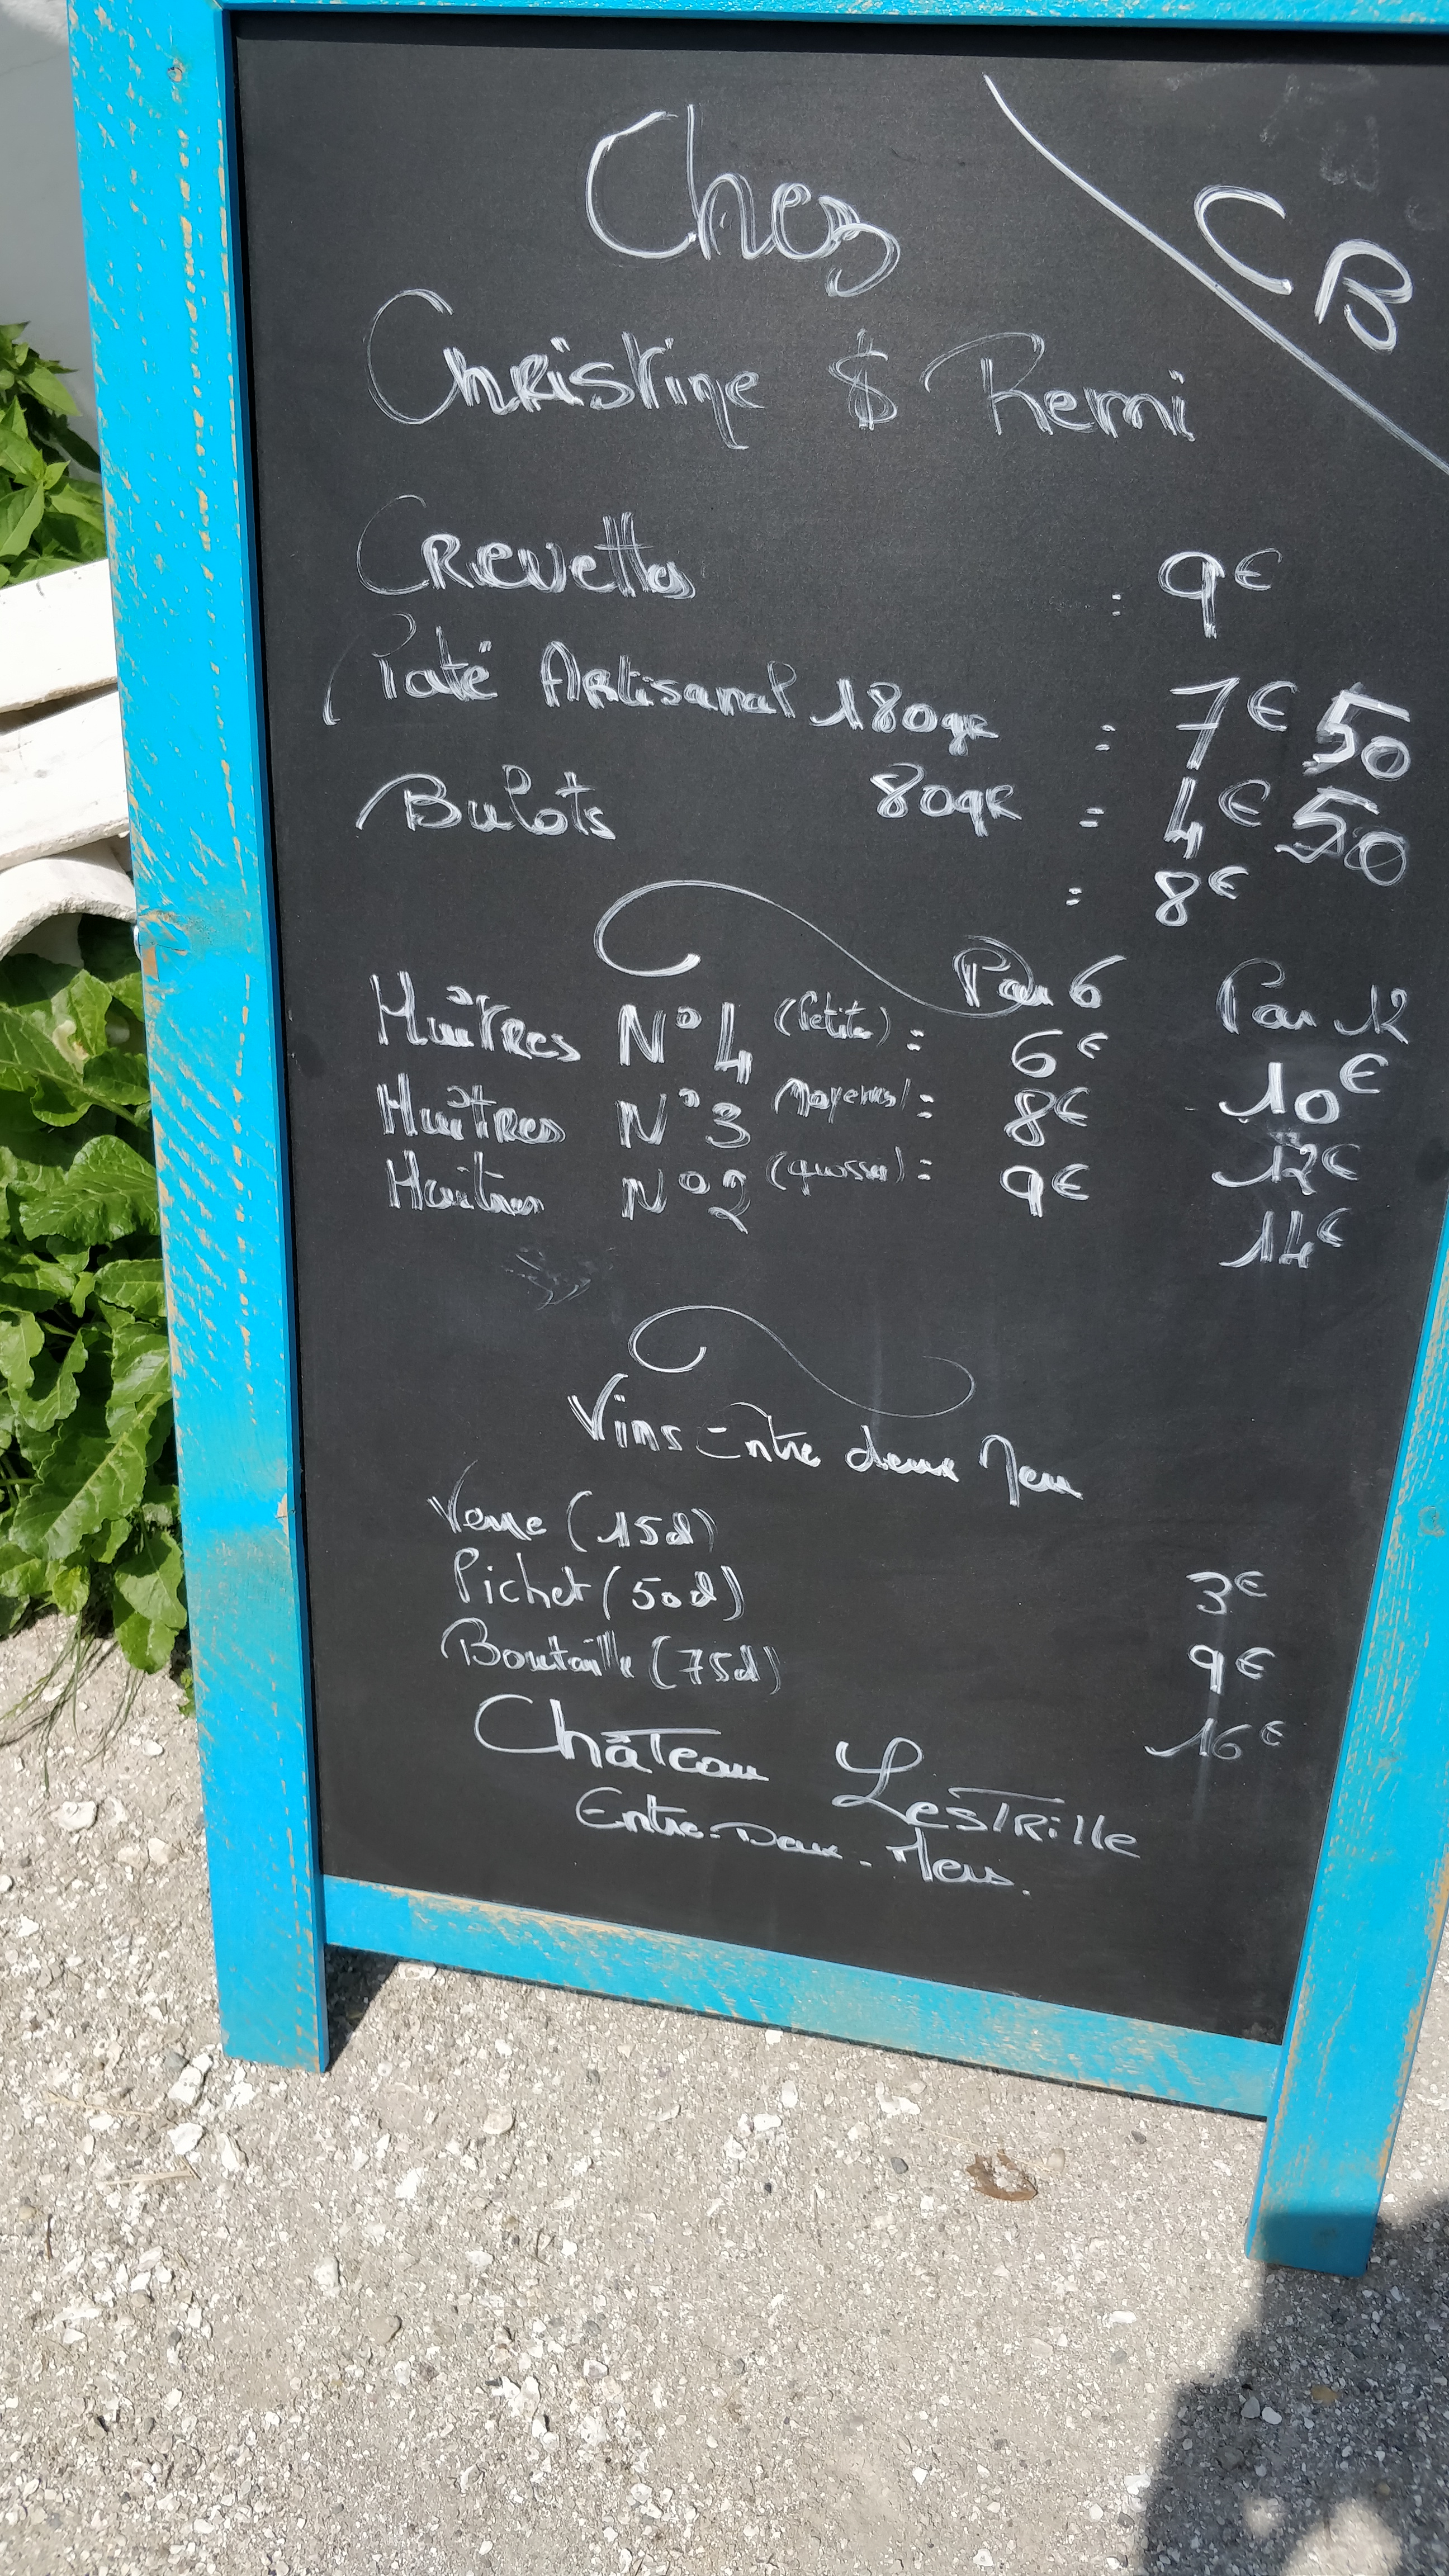 CB
Chez
Christine $ Remi
Crevettes : 9€
Paté Artisanal 180gr : 7€50
80gr : 4€50
Bulots : 8€
Par 6 Par 12
Huîtres N°4 (Petite) : 6€ 10€
Huîtres N°3 Moyenne) : 8€ 12€
Huitres N°2 (grosse) : 9€ 14€
Vins Entre deux Mers
Verre (15cl) 3€
Pichet (50cl) 9€
Bouteille (75cl) 16€
Château Lestrille
Entre-Deux-Mers.